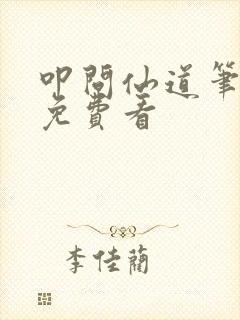 叩問仙道筆
免費看
李佳蘭